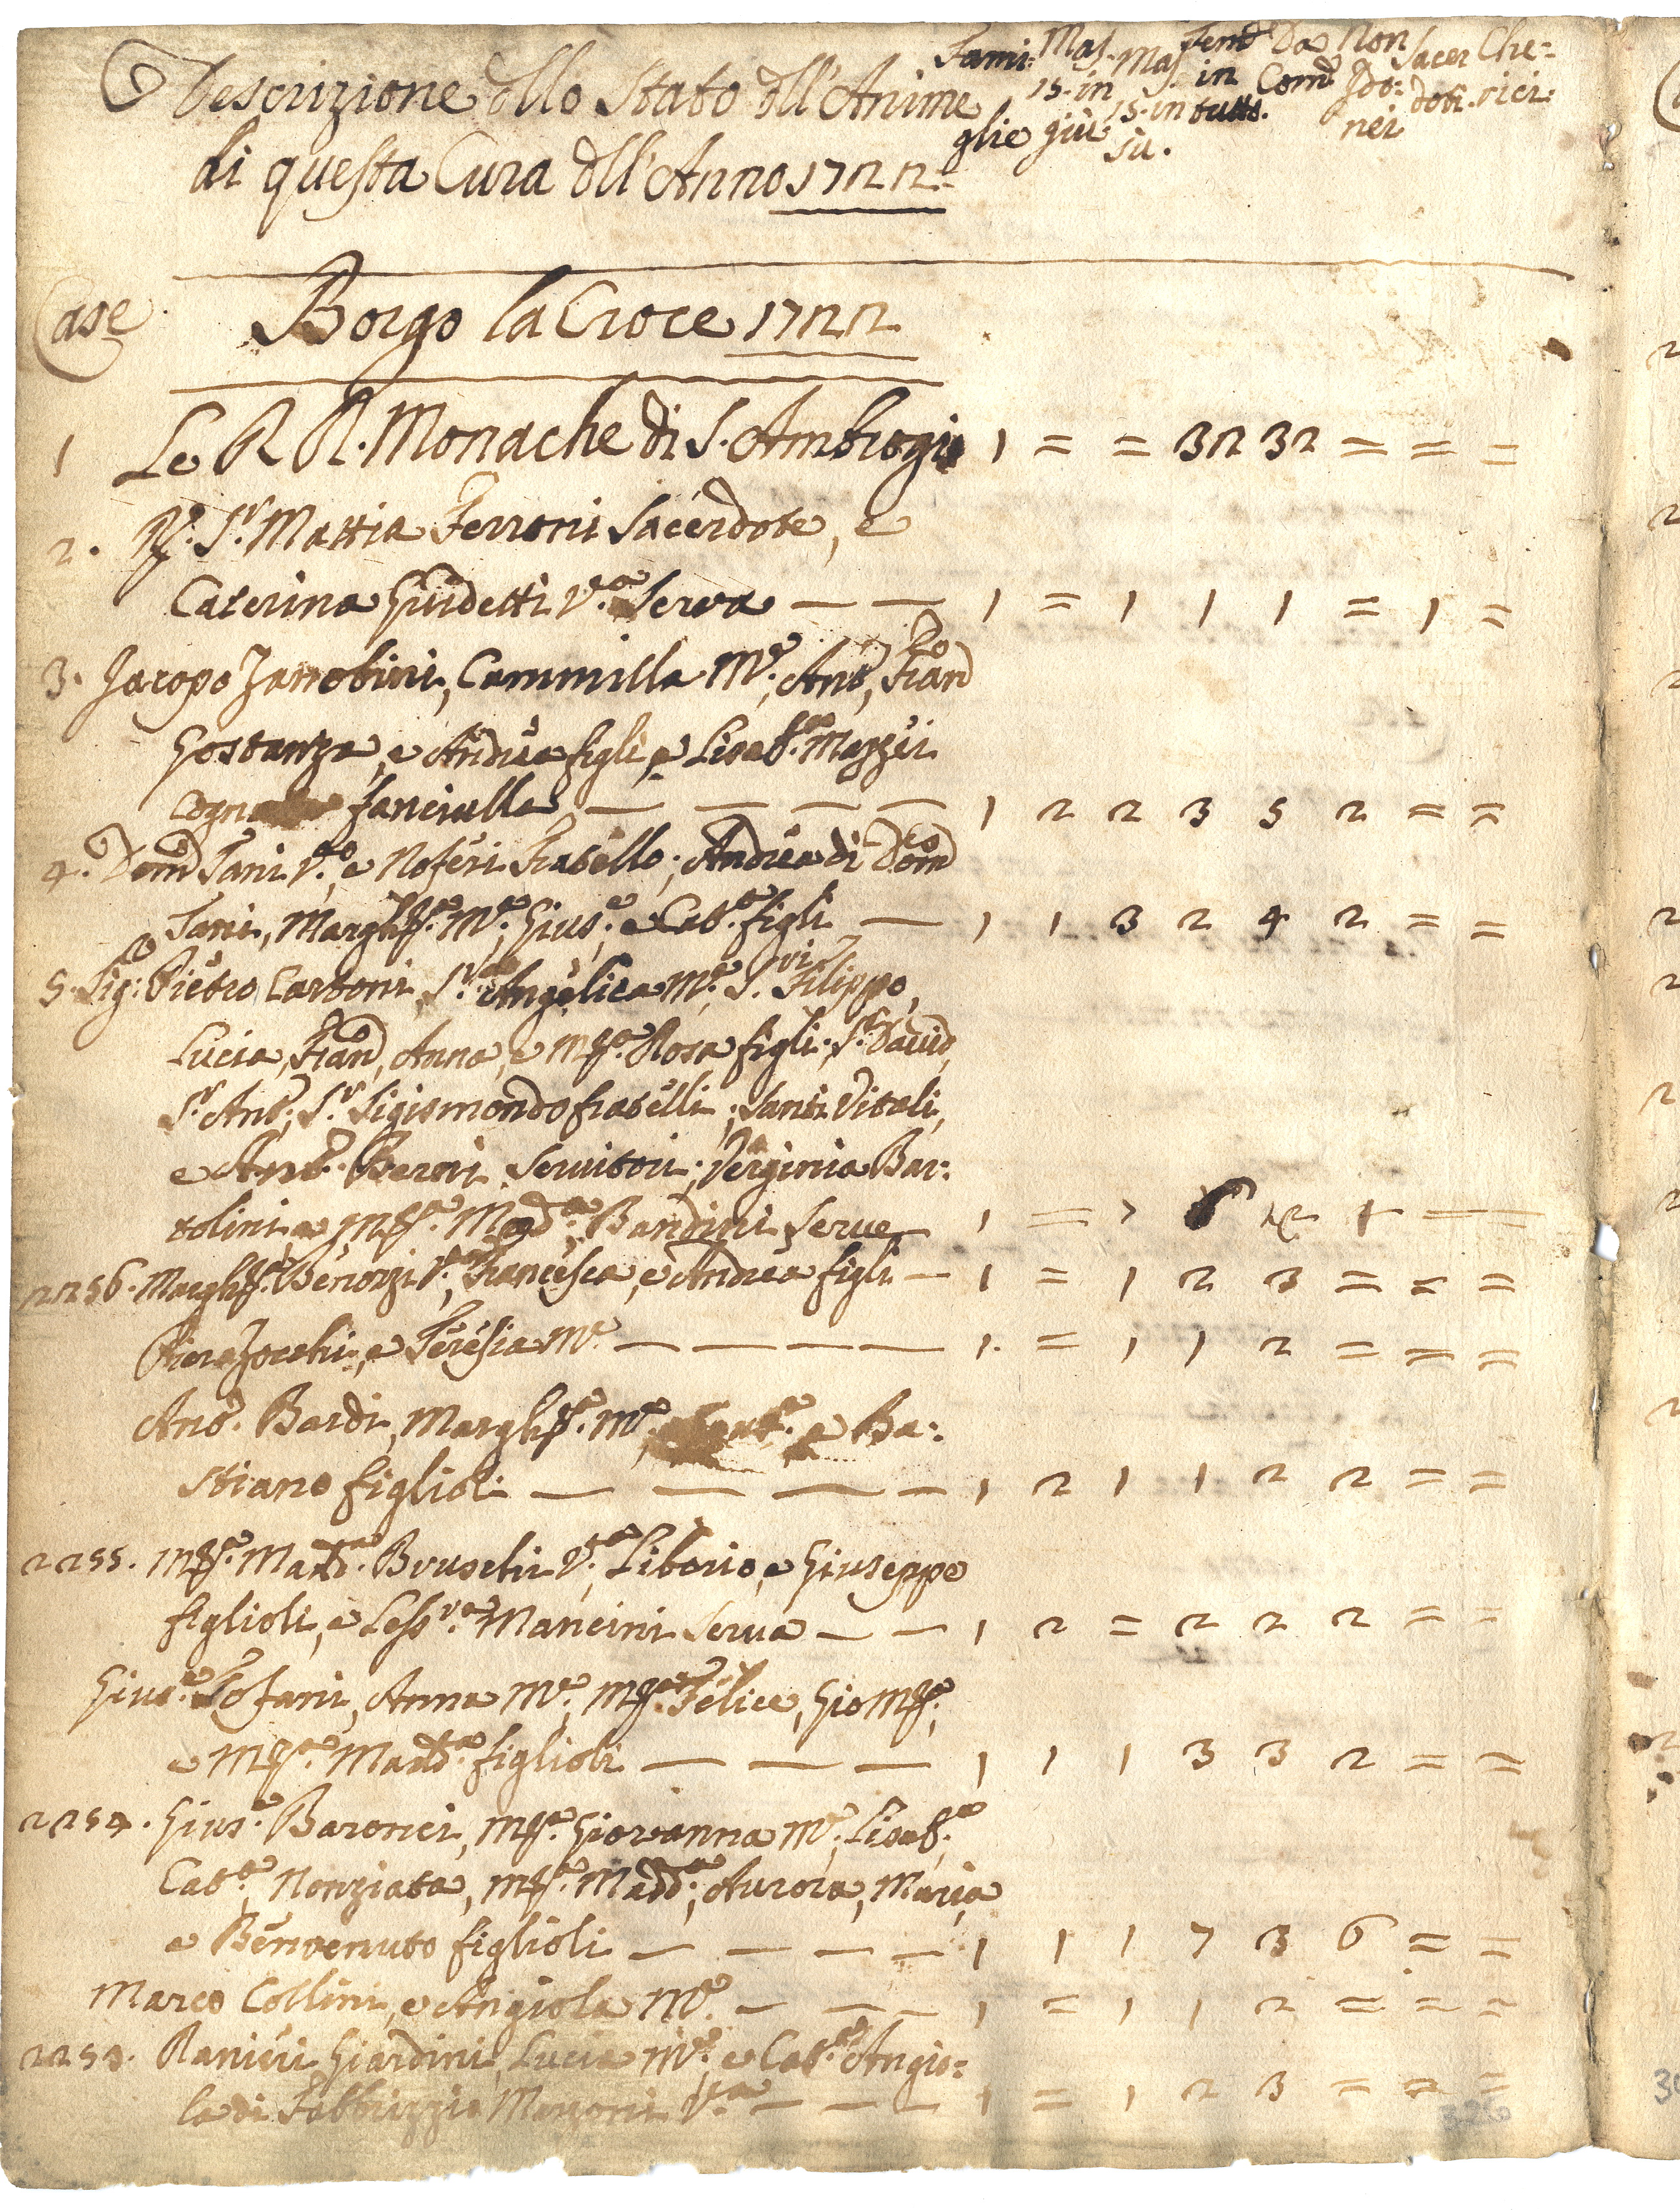 Descrizione dello Stato dell'Anime
di questa Cura dell'Anno 1722.
Fami: glie
Mas. 15. in giù
Mas. 15. in su.
Fem.e in tutto.
Da Com.e
Non Ido: nei
Sacer doti.
Che: rici.
Case Borgo la Croce 1722
1 Le R R. Monache di S. Ambrogio 1 = = 32 32 = = =
2. R. S.r Mattia Ferroni Sacerdote, e
Caterina Guidetti V.a Serva — — 1 = 1 1 1 = 1 =
3. Jacopo Zanobini, Cammilla M.e, Ant.o, Fran.co
Gostanza, e Andrea figli, e Lisab.a Mazzei
fanciulla — — — — 1 2 2 3 5 2 = =
4. Dom.co Tani V.o, e Noferi Fratello; Andrea di Dom.co
Tani, Margh.ta M.e, Gius.e, e Cat.a figli — 1 1 3 2 4 2 = =
5. Sig: Pietro Cartoni, S.ra Angelica M.e, S. Filippo,
Lucia, Fran.co, Anna, e M.a Rosa figli. S.r David,
S.r Ant.o, S.r Sigismondo fratelli; Santi Vitali,
e Ant.o Berni Servitori; Verginia Bar:
tolini e M.a Mad.a Bandini Serve — 1
2256. Margh.ta Benozzi V.a, Francesca, e Andrea figli — 1 = 1 2 3 = = =
Piero Zocchi, e Teresia M.e — — — — 1. = 1 1 2 = = =
Ant.o Bardi, Margh.ta M.e, e Ba:
stiano figlioli — — — — 1 2 1 1 2 2 = =
2255. M.a Madd.a Bruschi V.a, Liborio, e Giuseppe
figlioli, e Less.ra Mancini Serva — — 1 2 = 2 2 2 = =
Gius.e Tofani, Anna M.e, M.a Felice, Gio M.a,
e M.a Madd.a figlioli — — — 1 1 1 3 3 2 = =
2254. Gius.e Baronci, M.a Giovanna M.e, Lisab.a
Cat.a, Nonziata, M.a Madd.a, Aurora, Maria
e Benvenuto figlioli — — — — 1 1 1 7 3 6 = =
Marco Collini, e Angiola M.e — — — 1 = 1 1 2 = = =
2253. Ranieri Giardini, Lucia M.e, e Cat.a Angio=
la di Fabbrizzio V.a — — — 1 = 1 2 3 = = =